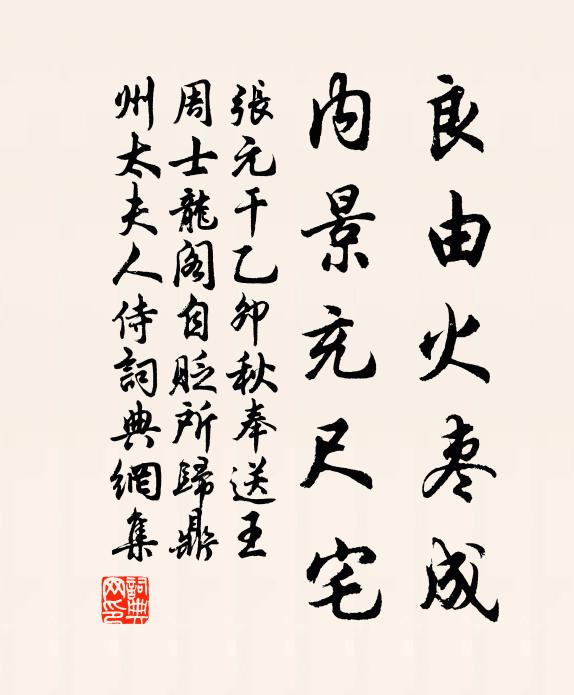 良由火枣成
内景充尺宅
張元干乙卯秋奉送王
周士龍阁自貶所歸鼎
州太夫人侍詞典網集
詞典网印